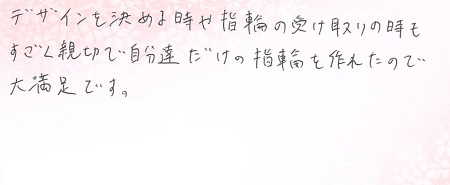 デザインを決める時や指輪の受け取りの時も
すごく親切で自分達だけの指輪を作れたので
大満足です。